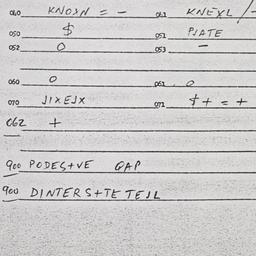 040 KNOXN = - 041 KNEXL / -
050 $ 051 PJATE
052 O 053 -
060 O 061 O
070 JIXEJX 071 $ + = +
062 +
900 PODES+VE GAP
900 DINTERS+TE TEJL